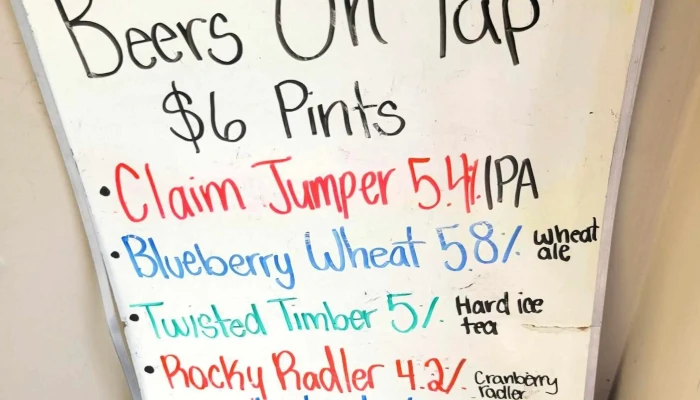 Beers On Tap
$6 Pints
• Claim Jumper 5.4% IPA
• Blueberry Wheat 58% wheat ale
• Twisted Timber 5% Hard ice tea
• Rocky Radler 4.2% Cranberry radler